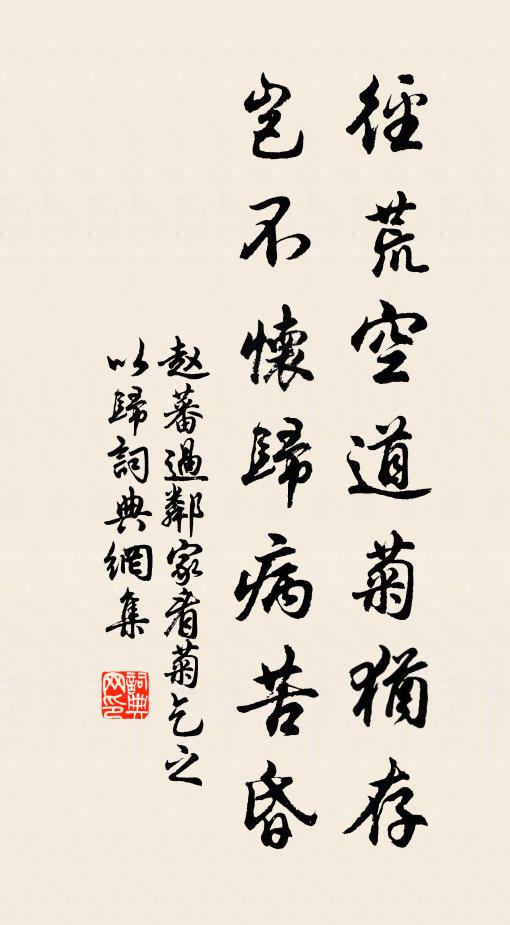 徑荒空道菊猶存
豈不懷歸病苦昏
赵蕃過鄰家看菊乞之
以歸詞典網集
詞典
网印